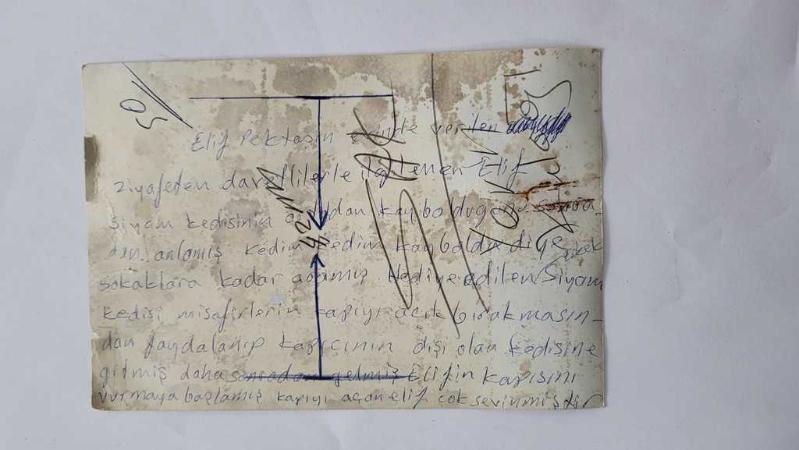 50
Elif Pektaşın evinde verilen
Ziyafeten davetlilerle ilgilenen Elif
Siyam kedisinin ortadan kaybolduğunu sonra-
dan anlamış kedim kedim kayboldu diye
sokaklara kadar aramış hediye edilen Siyam
kedisi misafirlerin kapıyı açık bırakmasın-
dan faydalanıp kapıcının dişi olan kedisine
gitmiş daha sonradan gelmiş Elifin kapısını
vurmaya başlamış kapıyı açan elif çok sevinmiştir